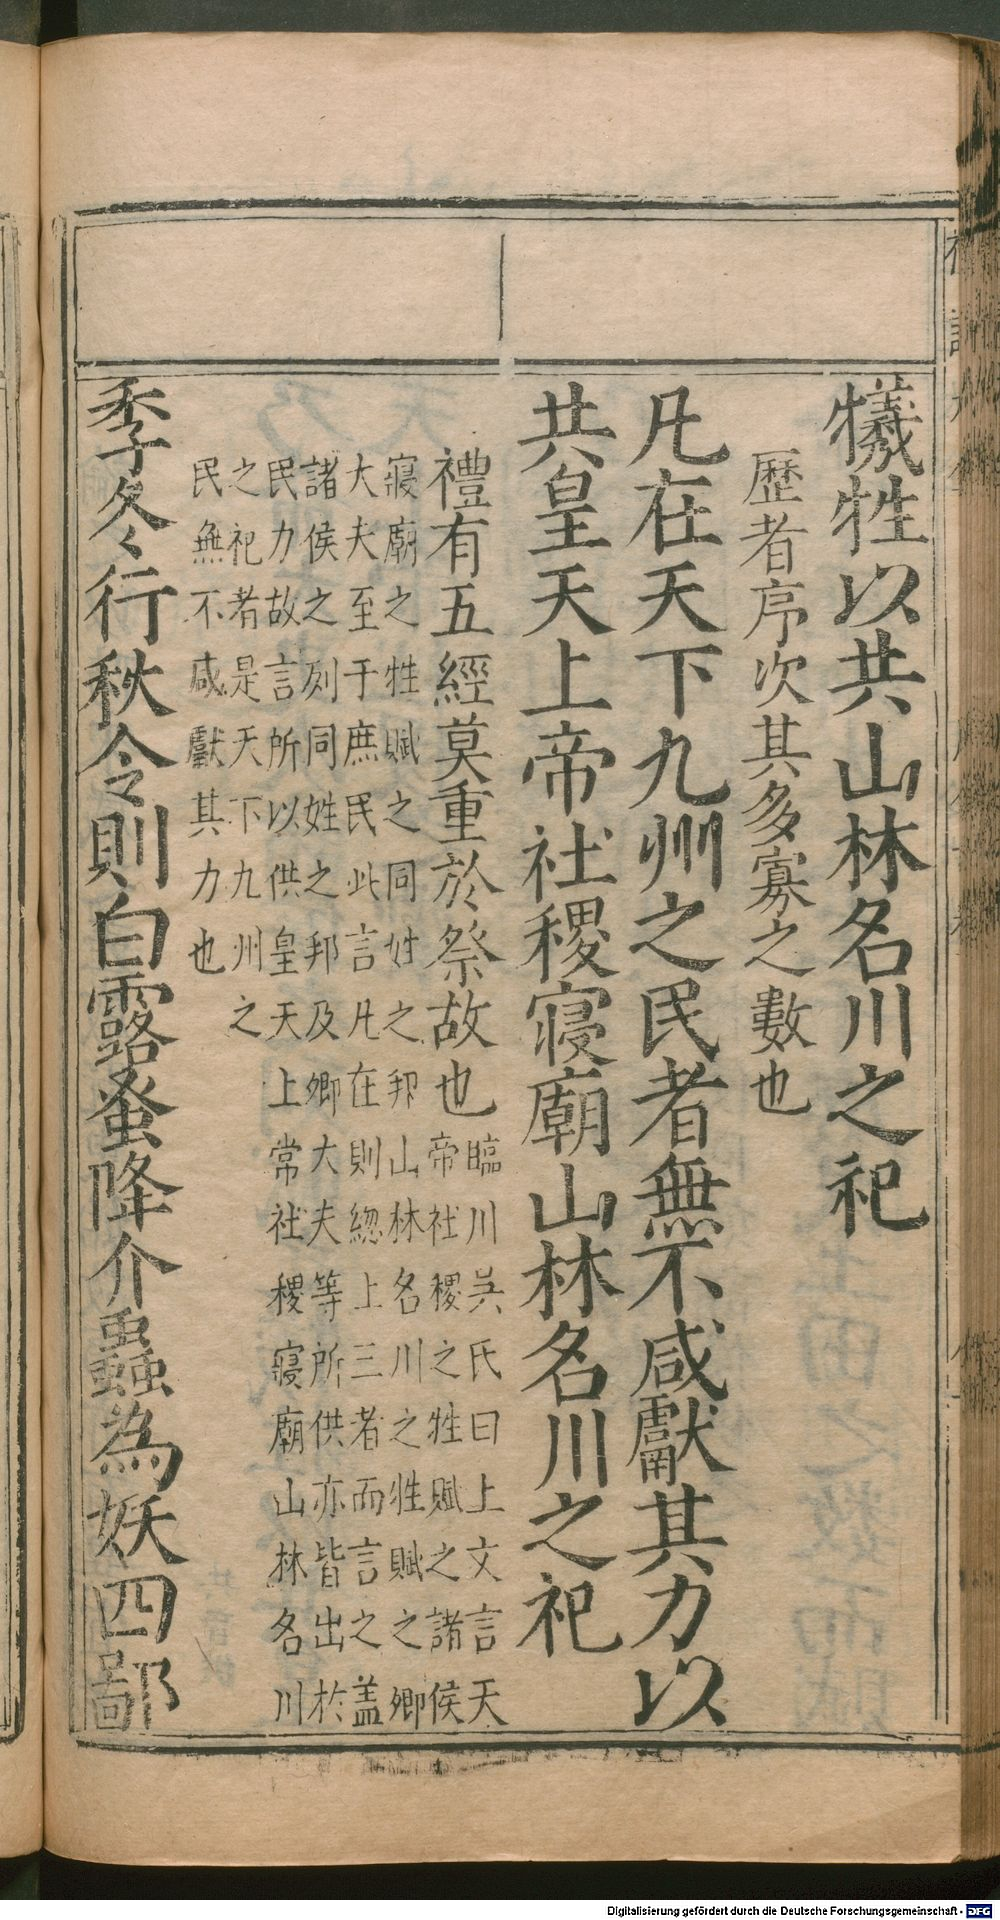 犧牲以共山林名川之祀
歷者序次其多寡之數也
凡在天下九州之民者無不咸獻其力以
共皇天上帝社稷寢廟山林名川之祀
禮有五經莫重於祭故也
臨川吳氏曰上文言天
帝社稷之牲賦之諸侯
寢廟之牲賦之同姓之邦山林名川之牲賦之卿
大夫至于庶民此言凡在則緫上三者而言之盖
諸侯之列同姓之邦及卿大夫等所供亦皆出於
民力故言所以供皇天上常社稷寢廟山林名川
之祀者是天下九州之
民無不咸獻其力也
季冬行秋令則白露蚤降介蟲為妖四鄙
Digitalisierung gefördert durch die Deutsche Forschungsgemeinschaft - DFG